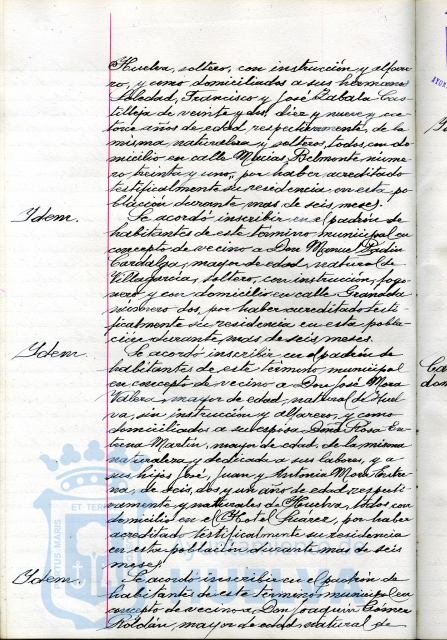 Huelva, soltero, con instrucción y alfare-
ro, y como domiciliados a sus hermanos
Soledad, Francisco y José Zabala Cas-
tilleja de veinte y dos, diez y nueve y ca-
torce años de edad respectivamente, de la
misma naturaleza y solteros, todos con do-
micilio en calle Macias Belmonte núme-
ro treinta y uno, por haber acreditado
testificalmente su residencia en esta po-
blación durante mas de seis meses.
Idem. Se acordó inscribir en el padrón de
habitantes de este término municipal en
concepto de vecino a Don Manuel Padin
Cardalga, mayor de edad, natural de
Villagarcia, soltero, con instrucción, fogo-
nero y con domicilio en calle Granada
número dos, por haber acreditado testi-
ficalmente su residencia en esta pobla-
ción durante mas de seis meses.
Idem. Se acordó inscribir en el padrón de
habitantes de este término municipal
en concepto de vecino a Don José Mora
Valera, mayor de edad, natural de Huel-
va, sin instrucción y alfarero, y como
domiciliados a su esposa Doña Rosa En-
trena Martin, mayor de edad, de la misma
naturaleza y dedicada a sus labores, y a
sus hijos José, Juan y Antonia Mora Entre-
na, de seis, dos y un año de edad, respecti-
vamente y naturales de Huelva, todos con
domicilio en el Hotel Suarez, por haber
acreditado testificalmente su residencia
en esta población durante mas de seis
meses.
Idem. Se acordó inscribir en el padrón de
habitantes de este término municipal en
concepto de vecino a Don Joaquin Gómez
Roldán, mayor de edad, natural de
PORTUS MARIS ET TERR
HUELVA